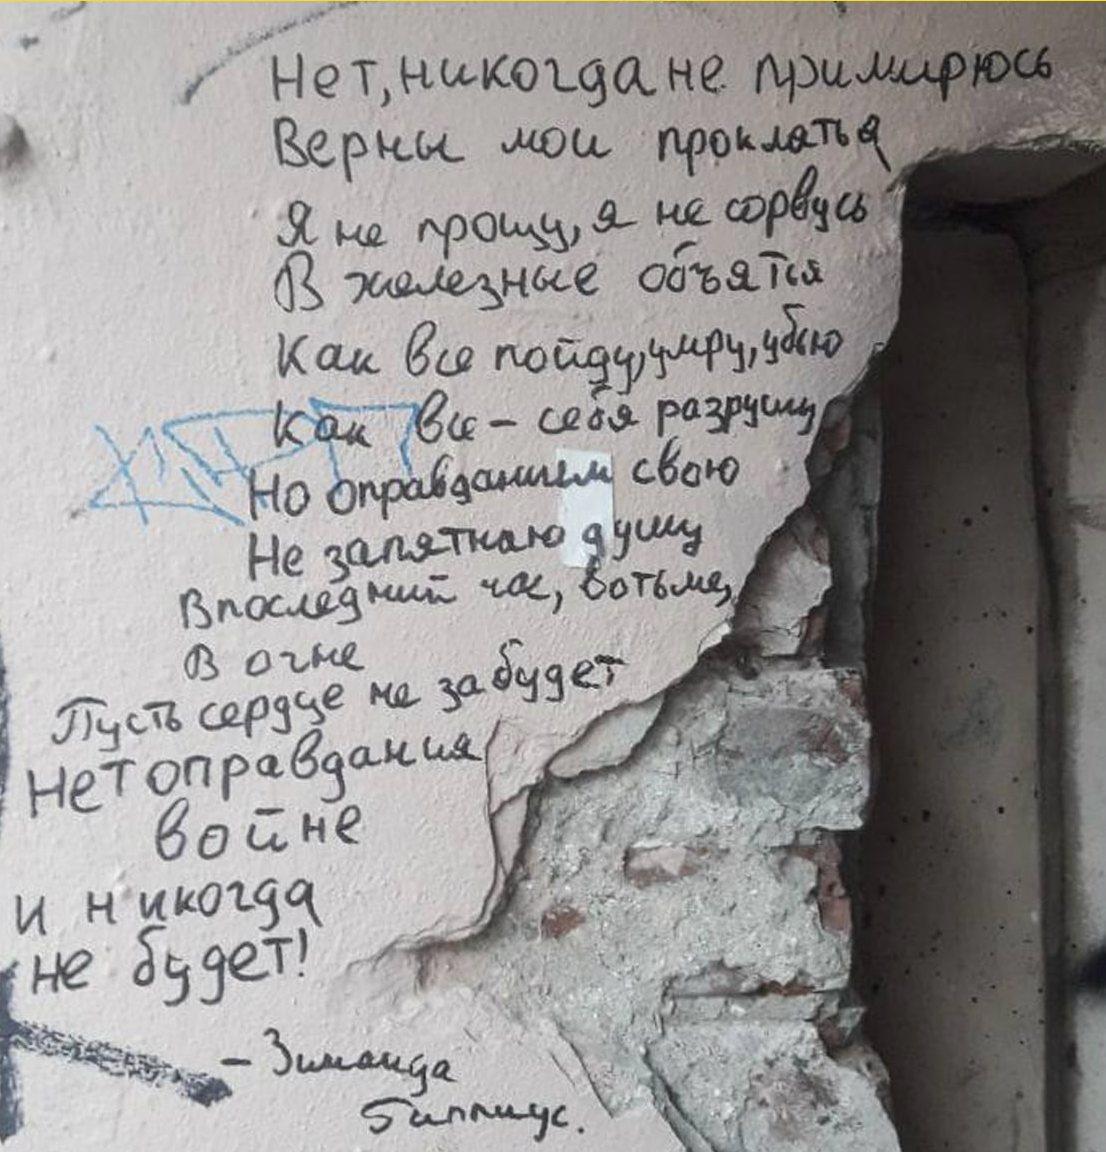 Нет, никогда не примирюсь
Верны мои проклятья
Я не прощу, я не сорвусь
В железные объятья
Как все пойду, умру, убью
Как все - себя разрушу
Но оправданием свою
Не запятнаю душу
В последний час, во тьме,
В огне
Пусть сердце не забудет
Нет оправдания
войне
И никогда
не будет!
- Зинаида
Гиппиус.